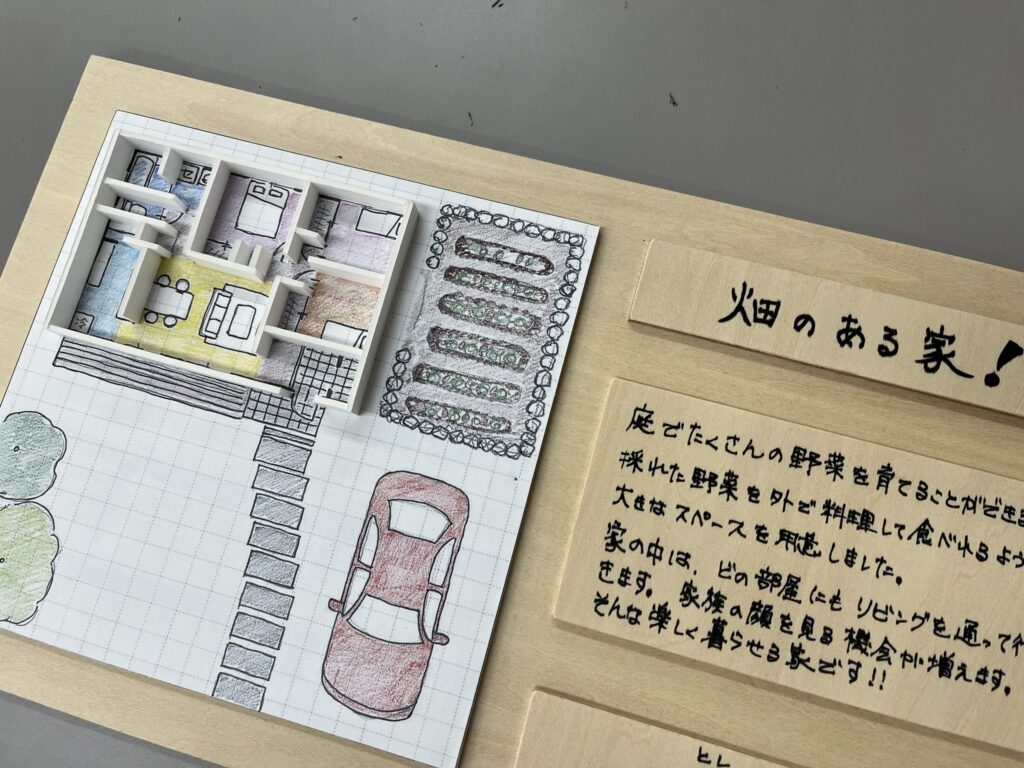 畑のある家!
庭でたくさんの野菜を育てることができ
採れた野菜を外で料理して食べれるよう
大きなスペースを用意しました。
家の中は、どの部屋にもリビングを通って行
きます。家族の顔を見る機会が増えます。
そんな楽しく暮らせる家です!!